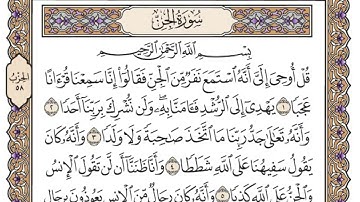 سُورَةُ الجِنِّ
بِسْمِ اللَّهِ الرَّحْمَٰنِ الرَّحِيمِ
قُلْ أُوحِيَ إِلَيَّ أَنَّهُ اسْتَمَعَ نَفَرٌ مِّنَ الْجِنِّ فَقَالُوا إِنَّا سَمِعْنَا قُرْءَانًا
عَجَبًا ١ يَهْدِي إِلَى الرُّشْدِ فَـَٔامَنَّا بِهِ وَلَن نُّشْرِكَ بِرَبِّنَا أَحَدًا ٢
وَأَنَّهُ تَعَٰلَىٰ جَدُّ رَبِّنَا مَا اتَّخَذَ صَٰحِبَةً وَلَا وَلَدًا ٣ وَأَنَّهُ كَانَ
يَقُولُ سَفِيهُنَا عَلَى اللَّهِ شَطَطًا ٤ وَأَنَّا ظَنَنَّا أَن لَّن تَقُولَ الْإِنسُ
وَالْجِنُّ عَلَى اللَّهِ كَذِبًا ٥ وَأَنَّهُ كَانَ رِجَالٌ مِّنَ الْإِنسِ يَعُوذُونَ بِرِجَالٍ
الحِزْبُ
٥٨